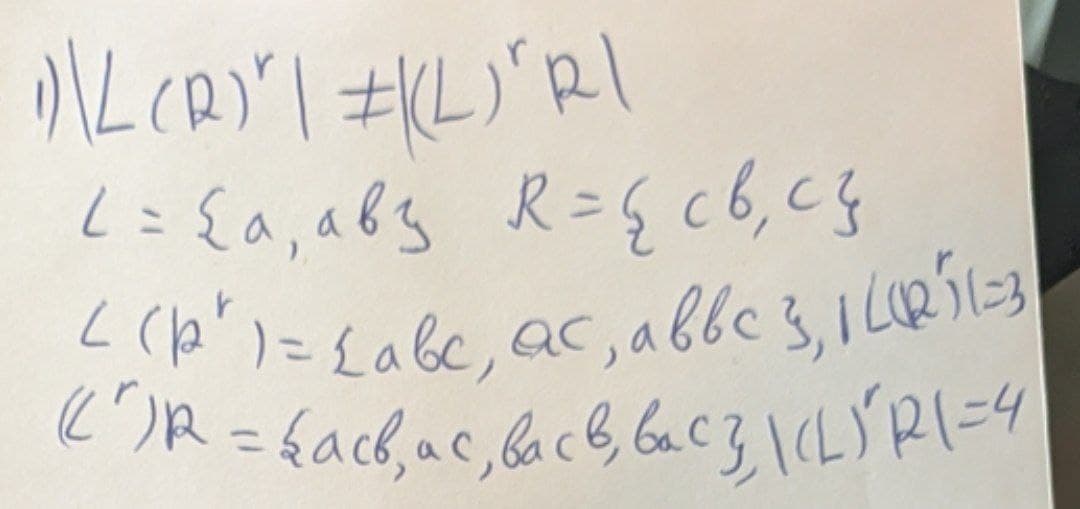 1) |L(R)ʳ| ≠ |(L)ʳR|
L = {a, ab} R = {cb, c}
L(Rʳ) = {abc, ac, abbc}, |L(Rʳ)| = 3
(Lʳ)R = {acb, ac, bacb, bac}, |(L)ʳR| = 4